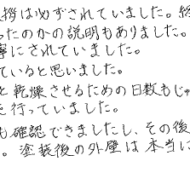 挨拶は必ずされていました。終
ったのかの説明もありました。
寧にされていました。
ていると思いました。
と乾燥させるための日数もじゅ
を行っていました。
も確認できましたし、その後
。塗装後の外壁は本当に